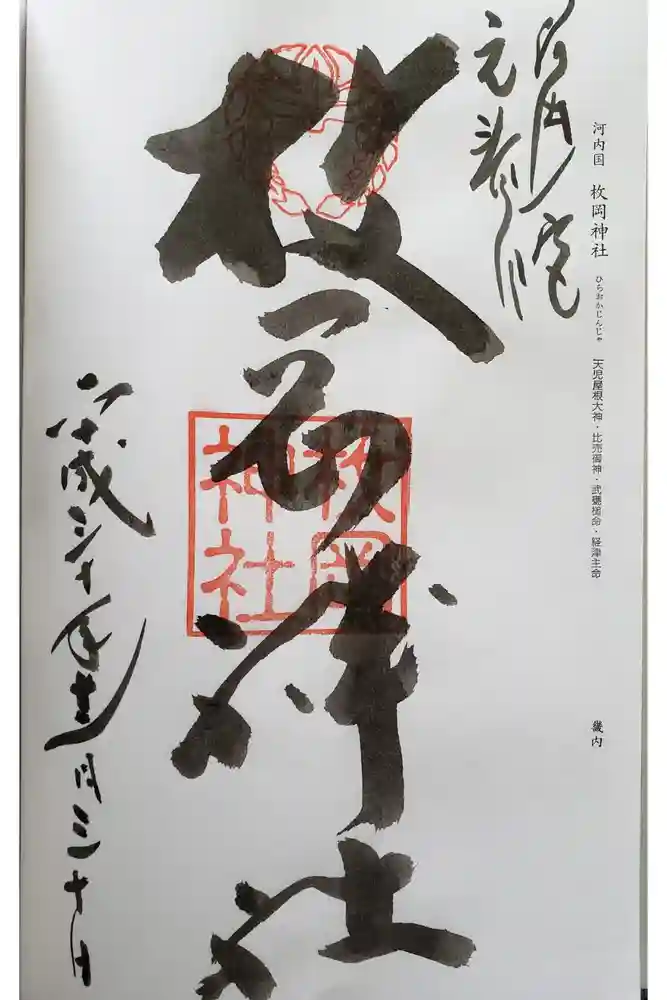 河内国 枚岡神社 ひらおかじんじゃ 天児屋根大神・比売御神・武甕槌命・経津主命 畿内
元春日
枚岡神社
枚岡
神社
平成三十年十一月三十日